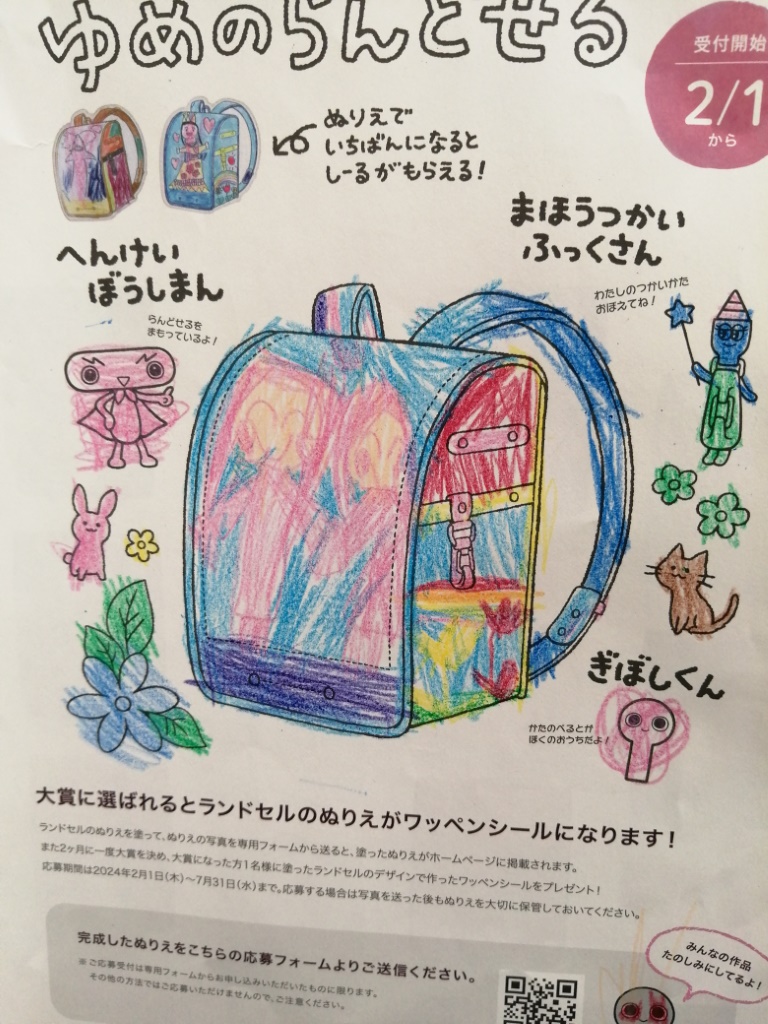 ゆめのらんどせる
受付開始
2/1
から
ぬりえで
いちばんになると
しーるがもらえる!
まほうつかい
ふっくさん
わたしのつかいかた
おぼえてね!
へんけい
ぼうしまん
らんどせるを
まもっているよ!
ぎぼしくん
かたのべるとが
ぼくのおうちだよ!
大賞に選ばれるとランドセルのぬりえがワッペンシールになります!
ランドセルのぬりえを塗って、ぬりえの写真を専用フォームから送ると、塗ったぬりえがホームページに掲載されます。
また2ヶ月に一度大賞を決め、大賞になった方1名様に塗ったランドセルのデザインで作ったワッペンシールをプレゼント!
応募期間は2024年2月1日(木)〜7月31日(水)まで。応募する場合は写真を送った後もぬりえを大切に保管しておいてください。
完成したぬりえをこちらの応募フォームよりご送信ください。
※ご応募受付は専用フォームからお申し込みいただいたものに限ります。
その他の方法ではご応募いただけませんので、ご注意ください。
みんなの作品
たのしみにしてるよ!